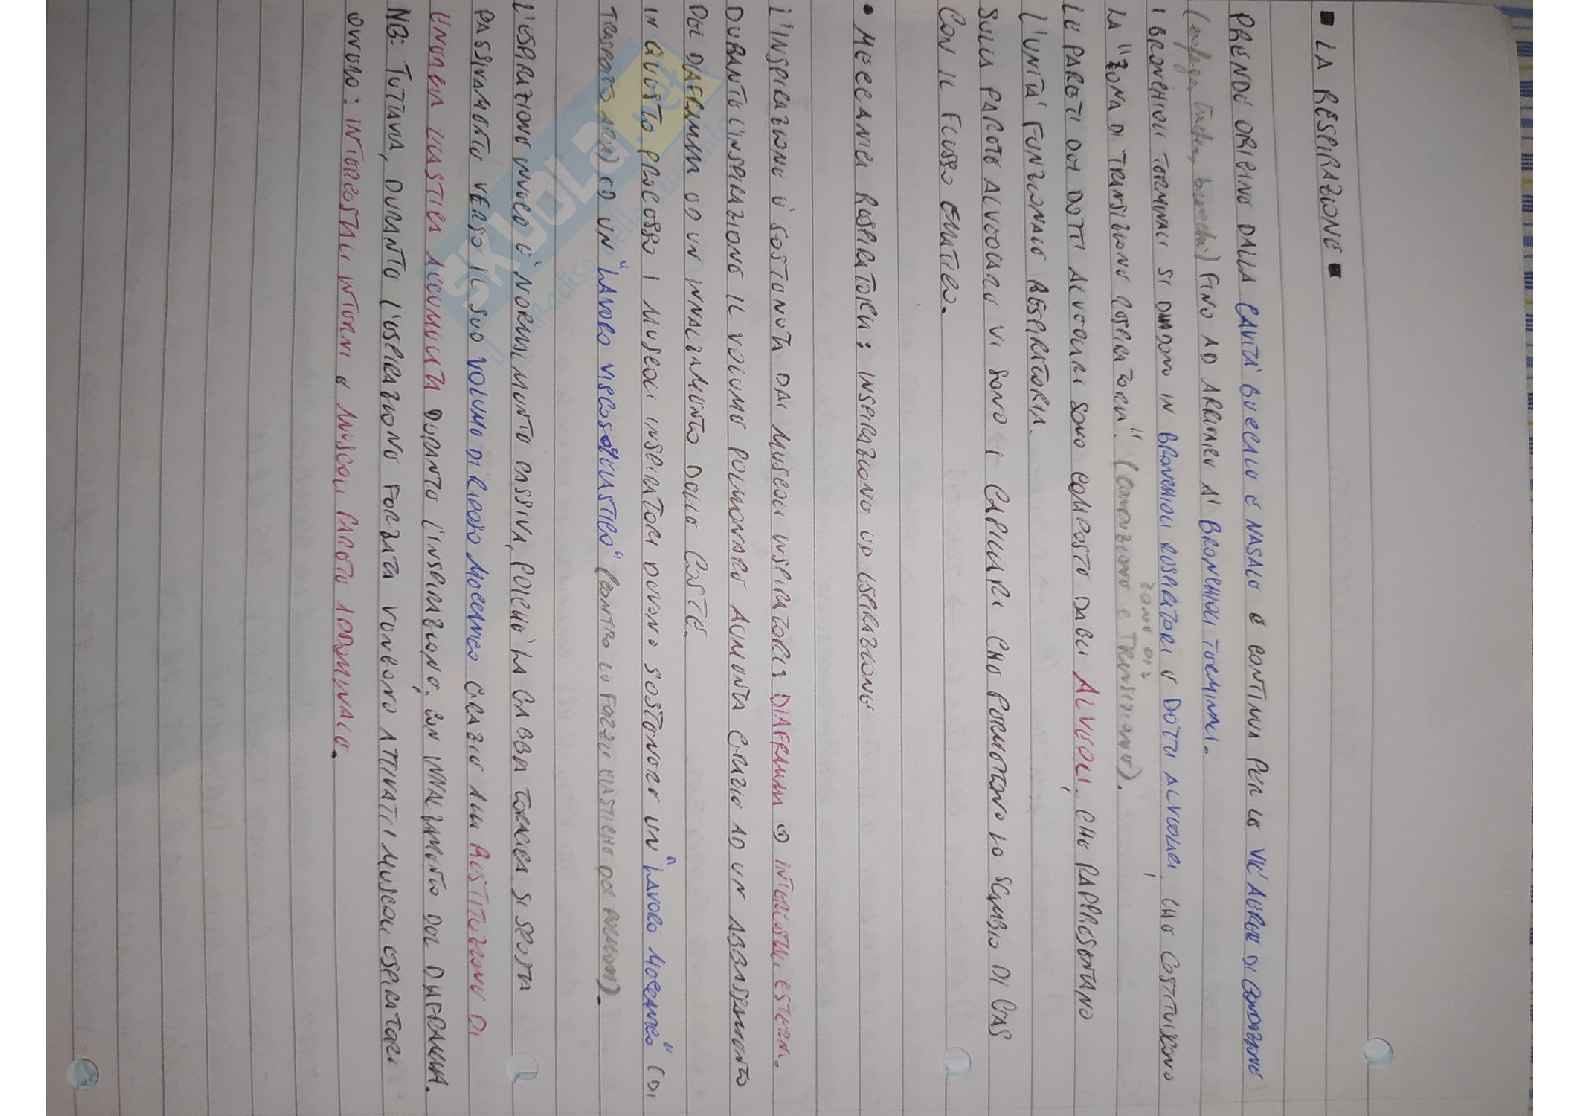 ▪ LA RESPIRAZIONE ▪
PRENDE ORIGINE DALLA CAVITÀ BUCCALE E NASALE E CONTINUA PER LE VIE AEREE DI CONDUZIONE
(laringe, trachea, bronchi) FINO AD ARRIVARE AI BRONCHIOLI TERMINALI.
I BRONCHIOLI TERMINALI SI DIVIDONO IN BRONCHIOLI RESPIRATORI E DOTTI ALVEOLARI, CHE COSTITUISCONO
ZONE DI:
LA "ZONA DI TRANSIZIONE RESPIRATORIA". (CONDUZIONE E TRANSIZIONE).
LE PARETI DEI DOTTI ALVEOLARI SONO COMPOSTE DAGLI ALVEOLI, CHE RAPPRESENTANO
L'UNITÀ FUNZIONALE RESPIRATORIA.
SULLA PARETE ALVEOLARE VI SONO I CAPILLARI CHE PERMETTONO LO SCAMBIO DI GAS
CON IL FLUSSO EMATICO.
• MECCANICA RESPIRATORIA: INSPIRAZIONE ED ESPIRAZIONE
L'INSPIRAZIONE È SOSTENUTA DAI MUSCOLI INSPIRATORI: DIAFRAMMA ED INTERCOSTALI ESTERNI.
DURANTE L'INSPIRAZIONE IL VOLUME POLMONARE AUMENTA GRAZIE AD UN ABBASSAMENTO
DEL DIAFRAMMA ED UN INNALZAMENTO DELLE COSTE.
IN QUESTO PROCESSO I MUSCOLI INSPIRATORI DEVONO SOSTENERE UN "LAVORO MECCANICO" (DI
TRASPORTO AEREO) ED UN "LAVORO VISCOSOELASTICO" (CONTRO LE FORZE ELASTICHE DEI POLMONI).
L'ESPIRAZIONE INVECE È NORMALMENTE PASSIVA, POICHÈ LA GABBIA TORACICA SI SPOSTA
PASSIVAMENTE VERSO IL SUO VOLUME DI RIPOSO MECCANICO GRAZIE ALLA RESTITUZIONE DI
ENERGIA ELASTICA ACCUMULATA DURANTE L'INSPIRAZIONE, CON INNALZAMENTO DEL DIAFRAMMA.
NB: TUTTAVIA, DURANTE L'ESPIRAZIONE FORZATA VENGONO ATTIVATI I MUSCOLI ESPIRATORI
OVVERO: INTERCOSTALI INTERNI E MUSCOLI PARETE ADDOMINALE.
SKUOLA.net